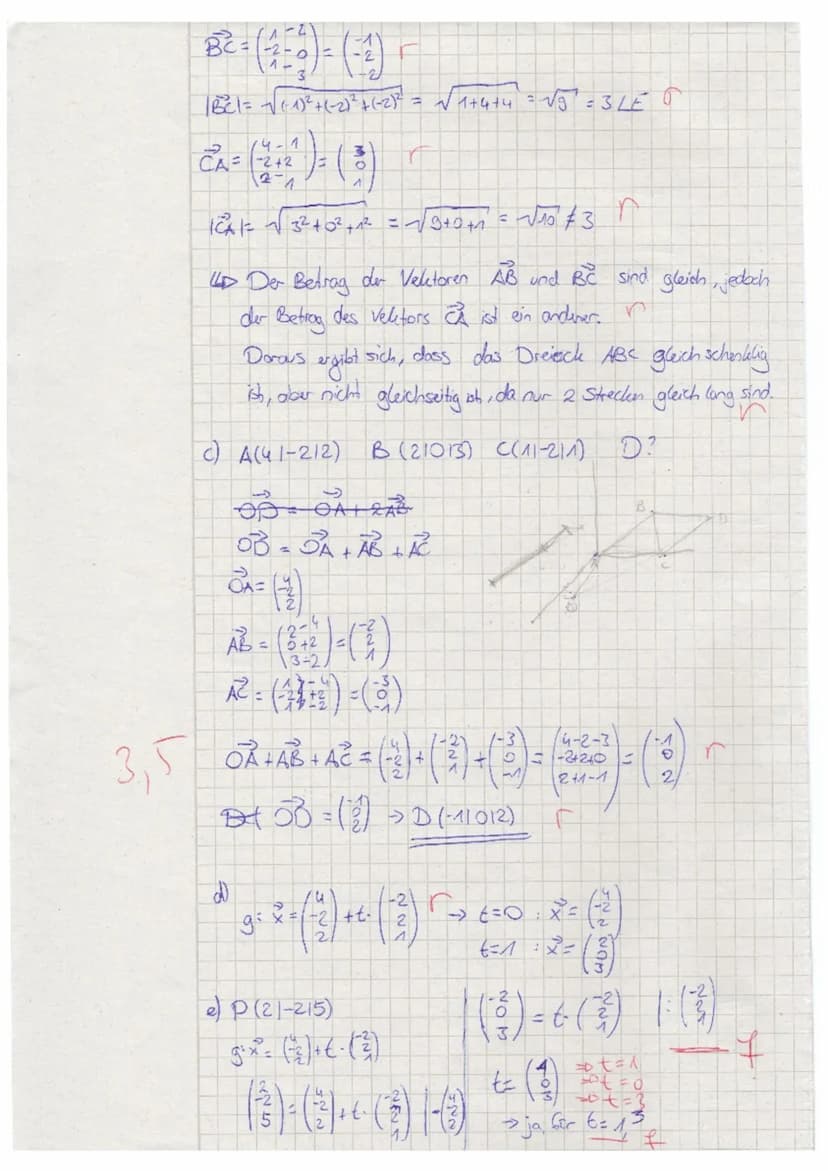 BC⃗ = (1-2 / -2-0 / 1-3) = (-1 / -2 / -2) r
|BC⃗| = √((-1)²+(-2)²+(-2)²) = √(1+4+4) = √9 = 3 LE r
CA⃗ = (4-1 / -2+2 / 2-1) = (3 / 0 / 1) r
|CA⃗| = √(3²+0²+1²) = √(9+0+1) = √10 ≠ 3 r
↳ Der Betrag der Vektoren AB⃗ und BC⃗ sind gleich, jedoch
der Betrag des Vektors CA⃗ ist ein anderer. r
Daraus ergibt sich, dass das Dreieck ABC gleichschenklig
ist, aber nicht gleichseitig ist, da nur 2 Strecken gleich lang sind. r
c) A(4|-2|2) B(2|0|3) C(1|-2|1) D?
OD⃗ = OA⃗ + 2AB⃗
OD⃗ = OA⃗ + AB⃗ + AC⃗
B D A C
OA⃗ = (4 / -2 / 2)
AB⃗ = (2-4 / 0+2 / 3-2) = (-2 / 2 / 1)
AC⃗ = (1-4 / -2+2 / 1-2) = (-3 / 0 / -1)
3,5
OA⃗ + AB⃗ + AC⃗ = (4 / -2 / 2) + (-2 / 2 / 1) + (-3 / 0 / -1) = (4-2-3 / -2+2+0 / 2+1-1) = (-1 / 0 / 2) r
OD⃗ = (-1 / 0 / 2) → D(-1|0|2) r
d)
g: x⃗ = (4 / -2 / 2) + t · (-2 / 2 / 1) r → t=0 : x⃗ = (4 / -2 / 2)
t=1 : x⃗ = (2 / 0 / 3)
e) P(2|-2|5)
g: x⃗ = (4 / -2 / 2) + t · (-2 / 2 / 1)
(2 / -2 / 5) = (4 / -2 / 2) + t · (-2 / 2 / 1) | - (4 / -2 / 2)
(-2 / 0 / 3) = t · (-2 / 2 / 1) | : (-2 / 2 / 1) f
t = (1 / 0 / 3) ⇒ t=1 ⇒ t=0 ⇒ t=3
→ ja, für t = 1,3 f